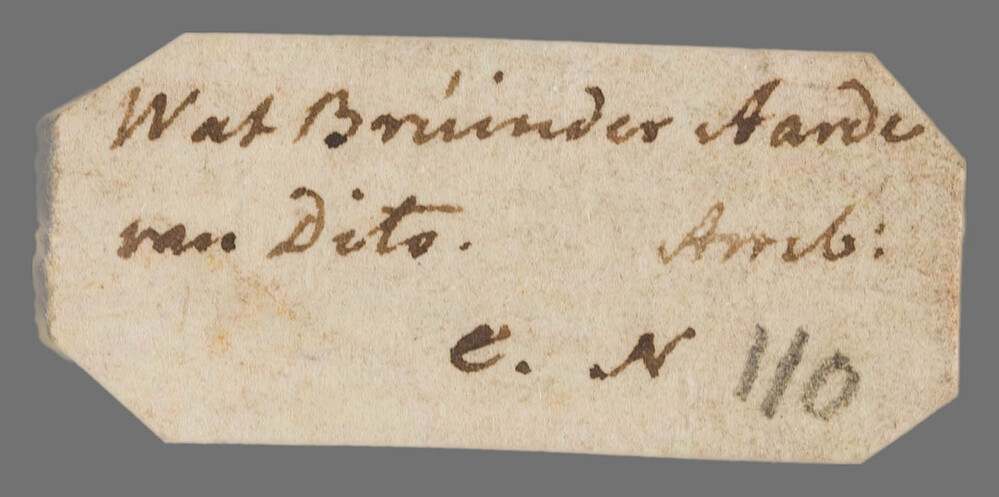 Wat Bruinder Aarde
van Dito. Amb:
C. N 110